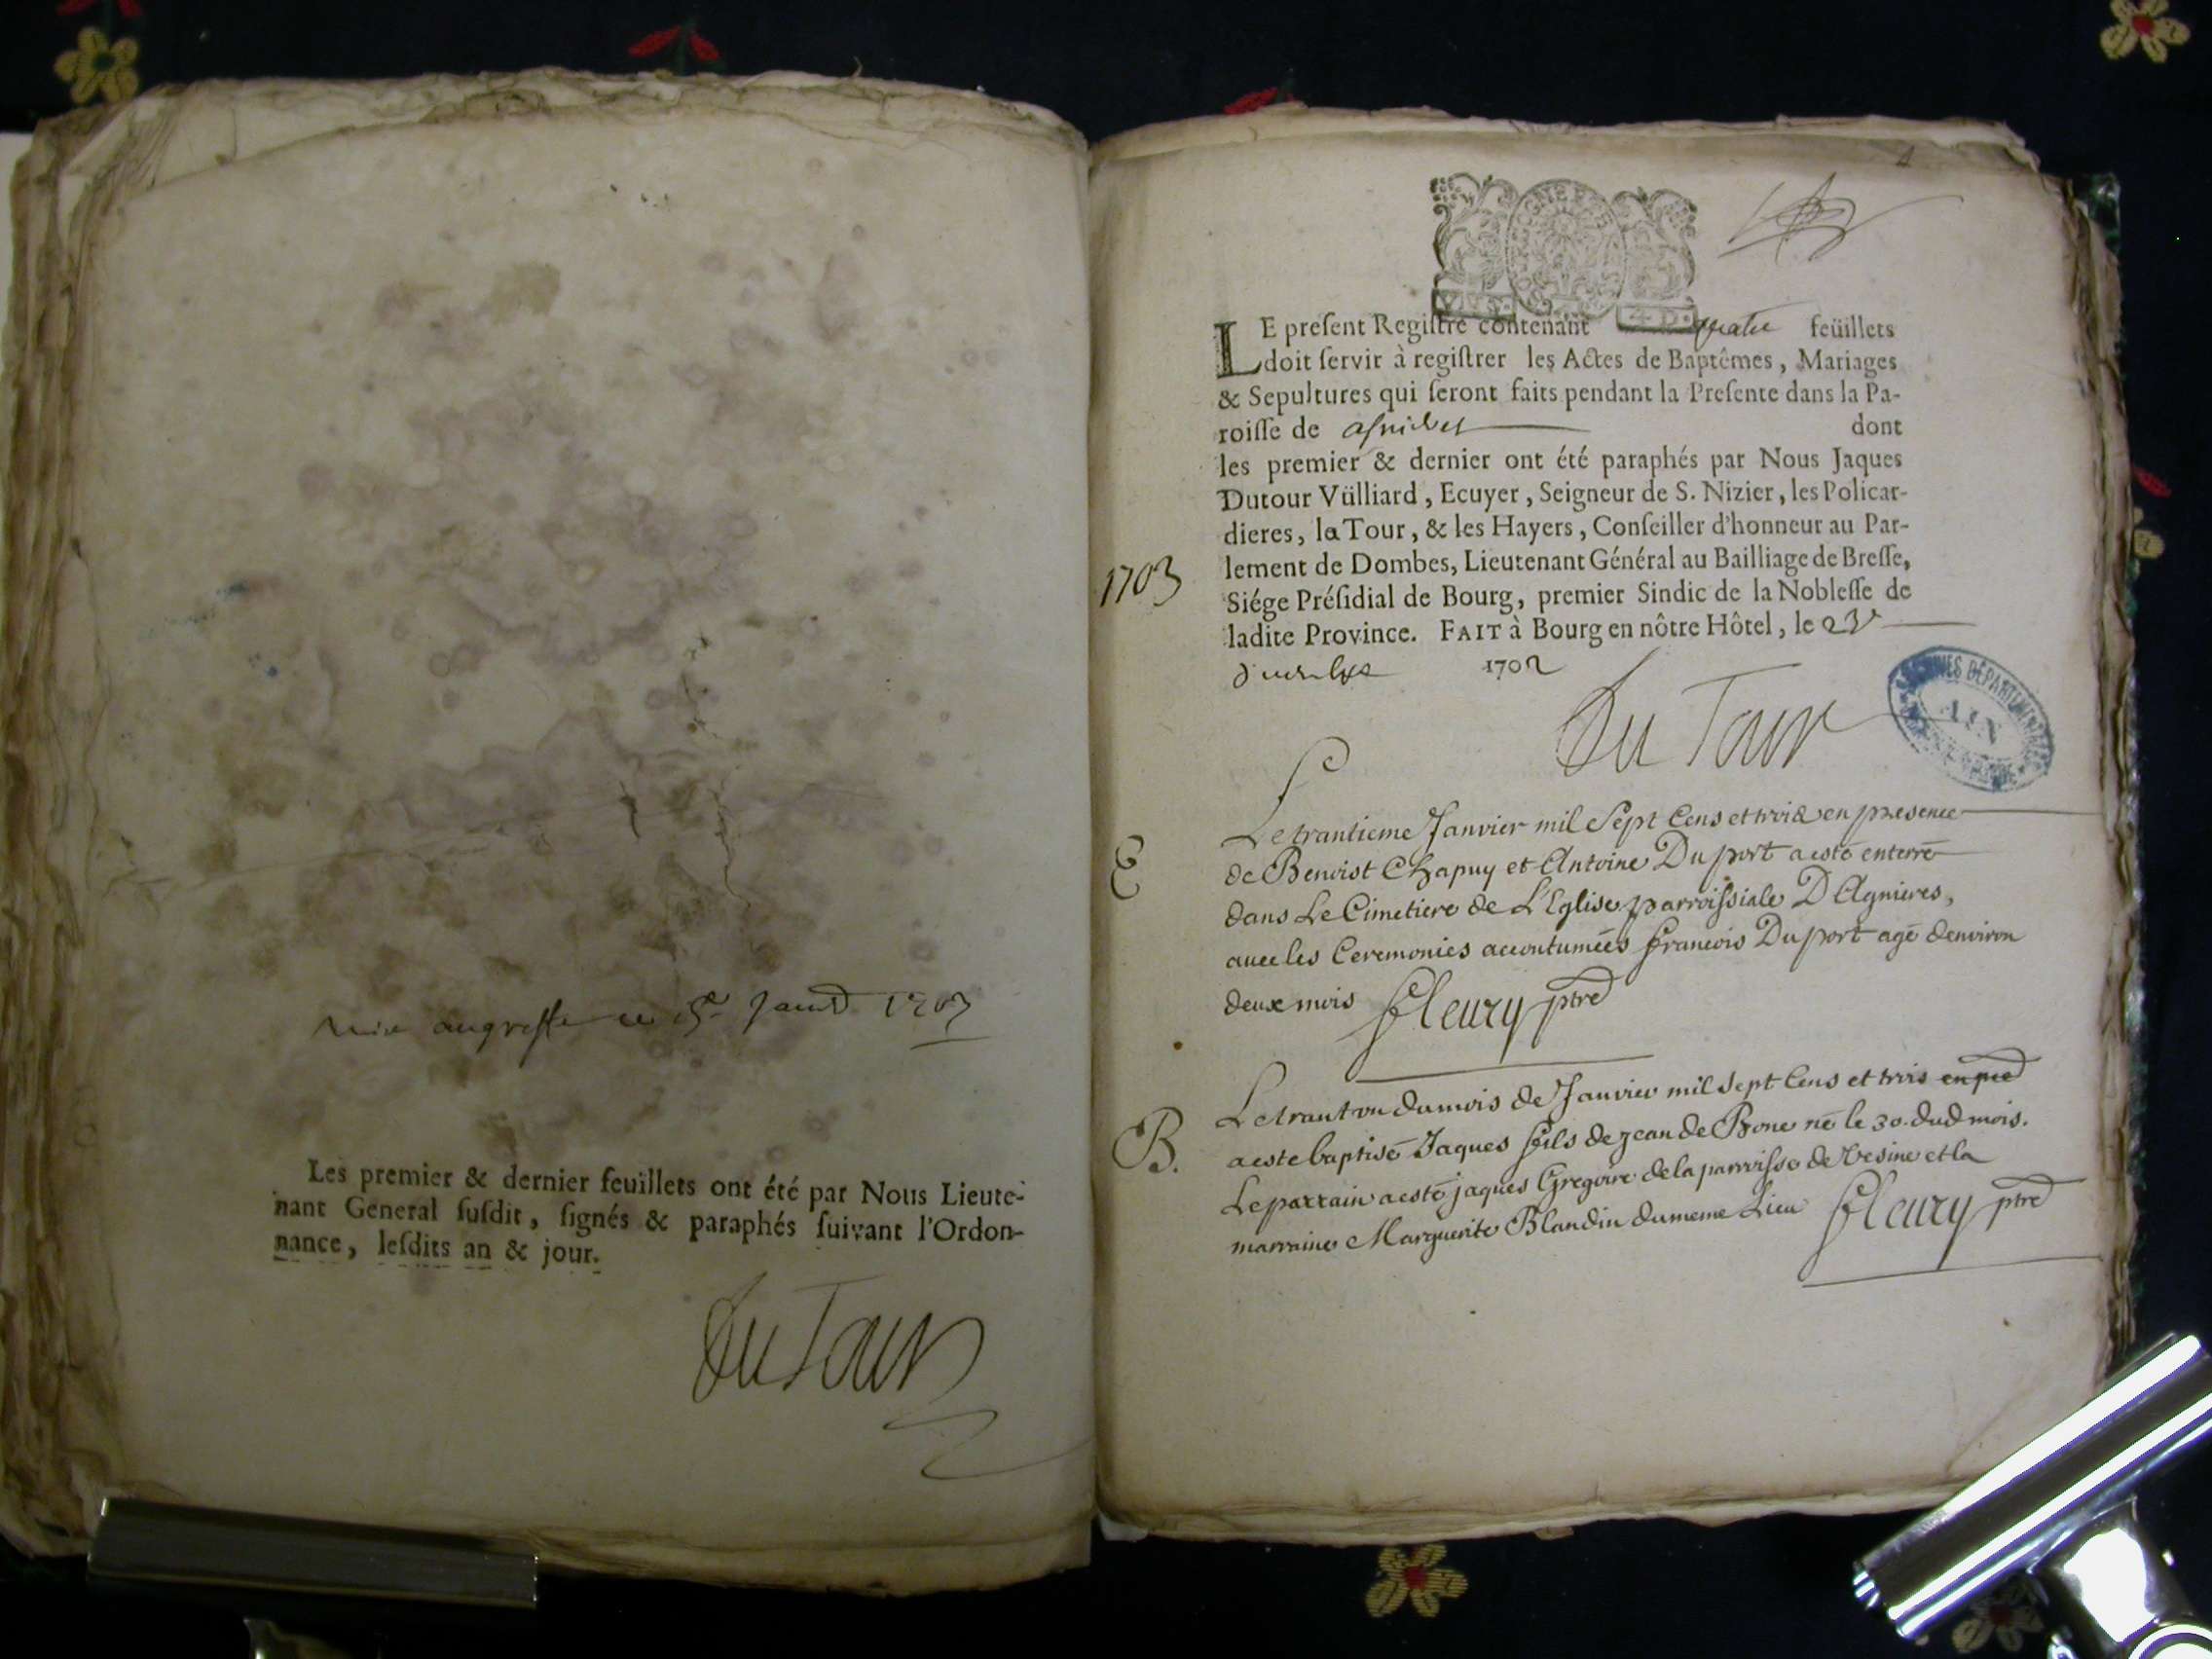 Mis au greffe le 15e Janvd 1703
Les premier & dernier feuillets ont été par Nous Lieute-
nant General susdit, signés & paraphés suivant l'Ordon-
nance, lesdits an & jour.
Du Tour
4
LE present Registre contenant quatre feüillets
doit servir à registrer les Actes de Baptêmes, Mariages
& Sepultures qui seront faits pendant la Presente dans la Pa-
roisse de asnieres dont
les premier & dernier ont été paraphés par Nous Jaques
Dutour Vülliard, Ecuyer, Seigneur de S. Nizier, les Policar-
dieres, la Tour, & les Hayers, Conseiller d'honneur au Par-
lement de Dombes, Lieutenant Général au Bailliage de Bresse,
1703
Siége Présidial de Bourg, premier Sindic de la Noblesse de
ladite Province. FAIT à Bourg en nôtre Hôtel, le
1702
Du Tour
ARCHIVES DÉPARTEMENTALES
AIN
Le trantieme Janvier mil Sept Cens et trois en presence
E
de Benoist Chapuy et Antoine Duport a esté enterré
dans Le Cimetiere de L'Eglise parroissiale D Agnieres,
avec les Ceremonies accoutumées francois Duport agé denviron
deux mois fleury ptre
Le trant un du mois de Janvier mil sept Cens et trois en pred
B.
a este baptisé Jaques fils de jean de Bone né le 30. dud mois.
Le parrain a esté jaques Gregoire de la parroisse de Vesine et la
marraine Marguerite Blandin du meme Lieu fleury ptre